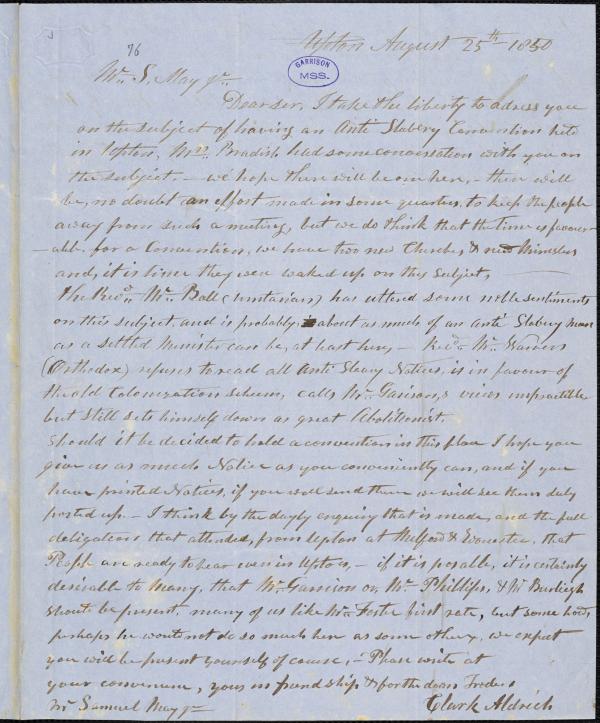 76
Upton August 25th 1850
GARRISON
MSS.
Mr. S. May Jr.
Dear sir, I take the liberty to adress you
on the subject of having an Anti Slavery Convention held
in Upton, Mrs. Bradish had some conversation with you on
the subject - we hope there will be one here, - there will
be, no doubt an effort made in some quarters, to keep the people
away from such a meeting, but we do think that the time is favour-
-able for a Convention, we have two new Churches, & new Ministers
and, it is time they were waked up on this subject,
the Revd. Mr. Ball (unitarian) has uttered some noble sentiments
on this subject, and is probably, about as much of an anti Slavery man
as a settled Minister can be, at least here, - Revd. Mr. Warren
(Orthodox) refuses to read all Anti Slavery Notices, is in favour of
the old Colonization scheme, calls Mr. Garison,s views impractible
but still sets himself down as great Abolitionist.
Should it be decided to hold a convention in this place I hope you
give us as much Notice as you conveniently can, and if you
have printed Notices, if you will send them we will see them duly
posted up. - I think by the dayly enquiry that is made, and the full
delegations that attended, from Upton at Milford & Worcester, that
People are ready to hear even in Upton, - if it is posable, it is certainly
desirable to many, that Mr. Garrison or, Mr. Phillips, & Mr Burleigh
should be present, many of us like Mr. Foster first rate, but some how,
perhaps he would not do so much here as some others, we expect
you will be present yourself of course, - Please write at
your convenience, yours in friendship & for the down Troden
Mr Samuel May Jr
Clark Aldrich